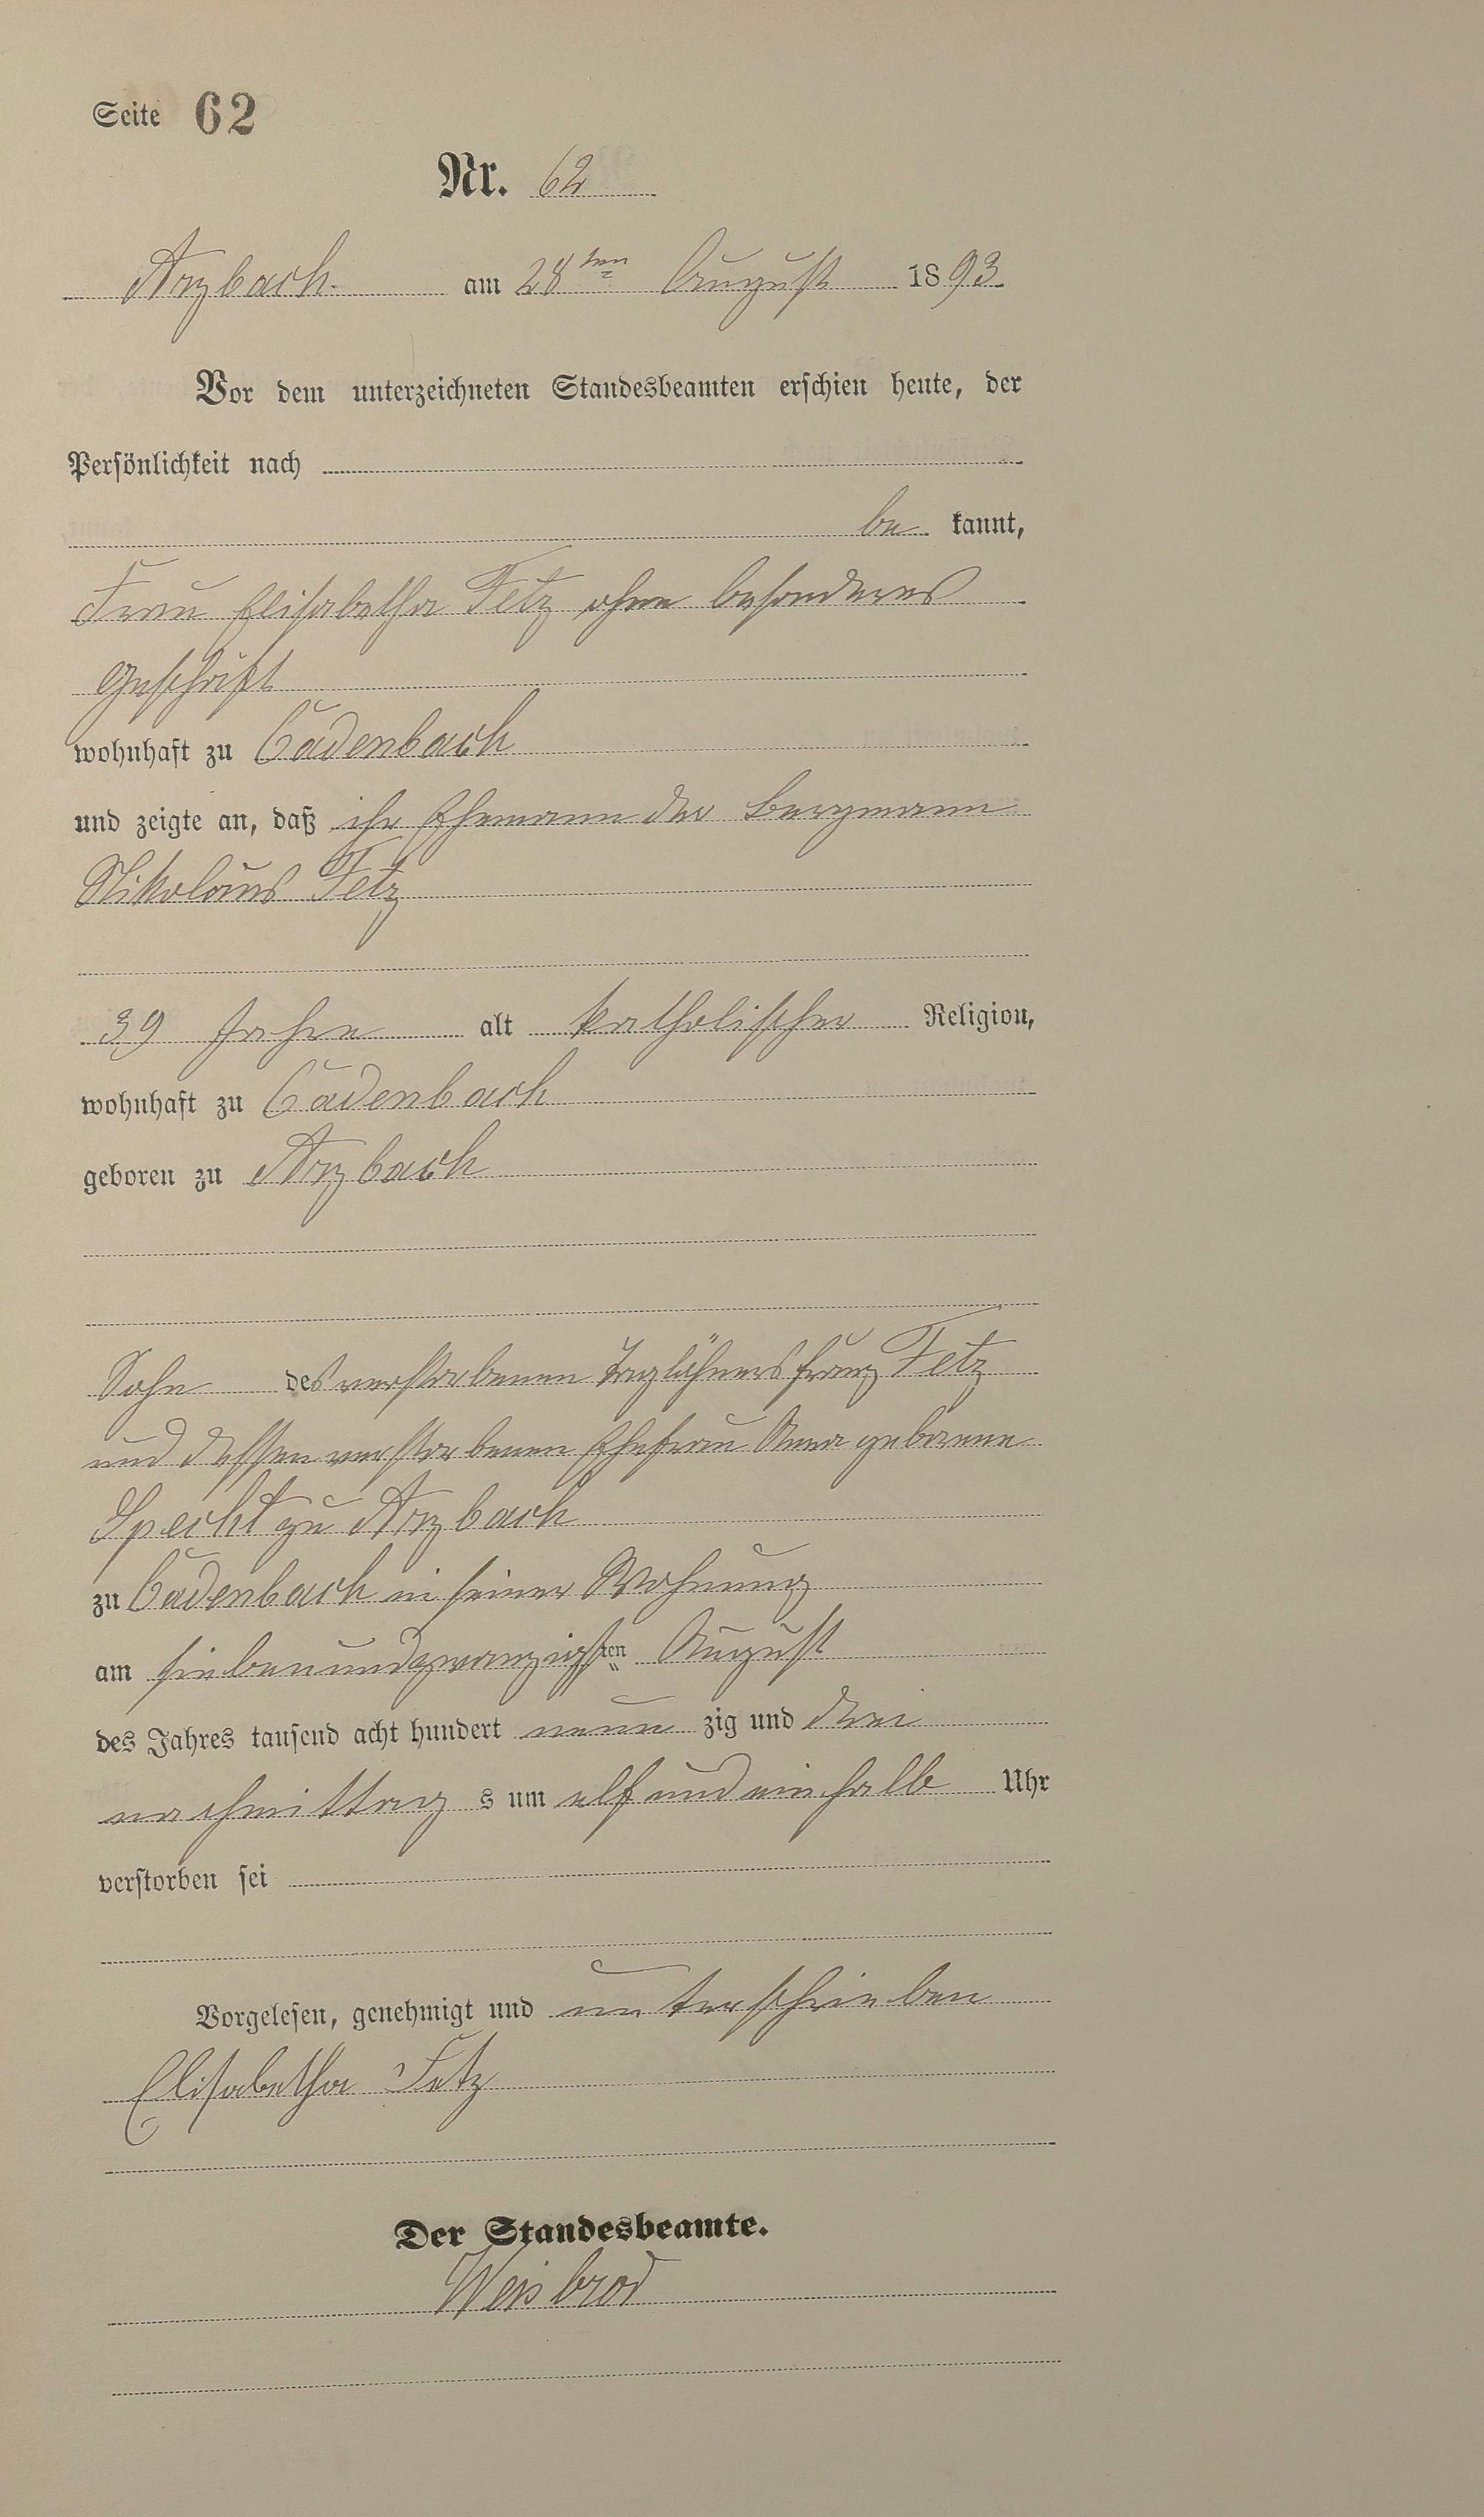 Seite 62
Nr. 62
Arzbach am 28ten August 1893.
Vor dem unterzeichneten Standesbeamten erschien heute, der
Persönlichkeit nach
be kannt,
Frau Elisabetha Fetz ohne besonderes
Geschäft
wohnhaft zu Cadenbach
und zeigte an, daß ihr Ehemann der Bergmann
Nikolaus Fetz
39 Jahre alt katholischer Religion,
wohnhaft zu Cadenbach
geboren zu Arzbach
Sohn des verstorbenen Taglöhners Franz Fetz
und dessen verstorbenen Ehefrau Anna geborene
Specht zu Arzbach
zu Cadenbach in seiner Wohnung
am siebenundzwanzigsten August
des Jahres tausend acht hundert neun zig und drei
nachmittag s um elf und ein halb Uhr
verstorben sei
Vorgelesen, genehmigt und unterschrieben
Elisabetha Fetz
Der Standesbeamte.
Weisbrod